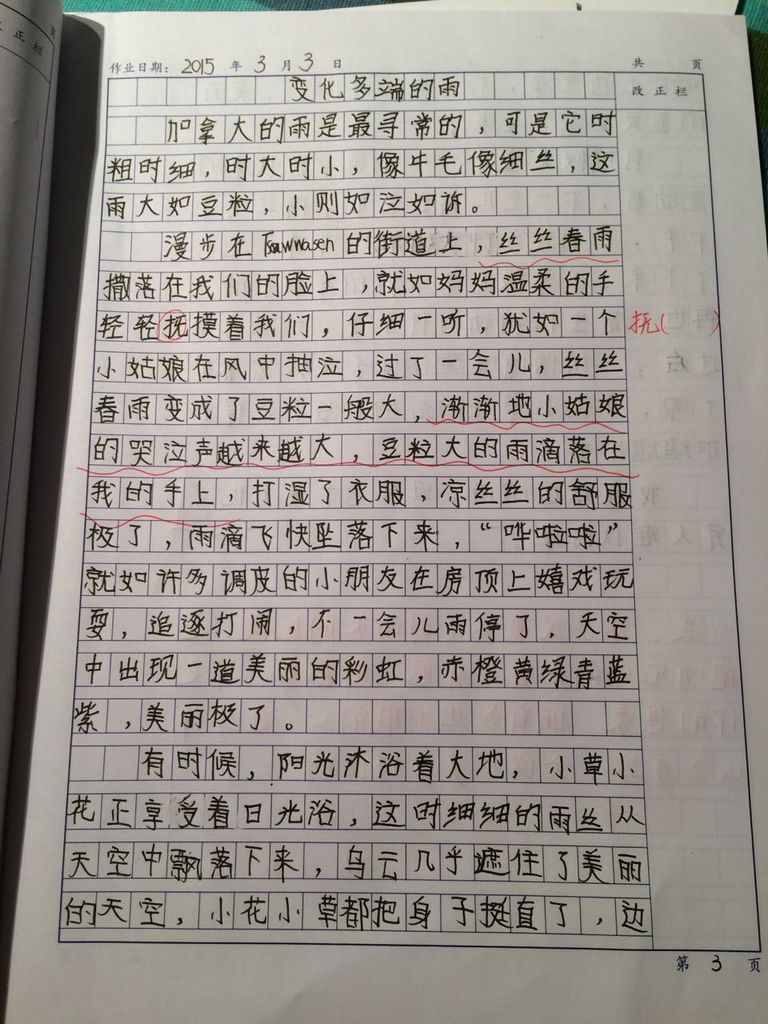 正栏
作业日期: 2015 年 3 月 3 日
共 页
改正栏
变化多端的雨
加拿大的雨是最寻常的，可是它时
粗时细，时大时小，像牛毛像细丝，这
雨大如豆粒，小则如泣如诉。
漫步在Tsawwasen的街道上，丝丝春雨
撒落在我们的脸上，就如妈妈温柔的手
轻轻抚摸着我们，仔细一听，犹如一个
抚( )
小姑娘在风中抽泣，过了一会儿，丝丝
春雨变成了豆粒一般大，渐渐地小姑娘
的哭泣声越来越大，豆粒大的雨滴落在
我的手上，打湿了衣服，凉丝丝的舒服
极了，雨滴飞快坠落下来，“哗啦啦”
就如许多调皮的小朋友在房顶上嬉戏玩
耍，追逐打闹，不一会儿雨停了，天空
中出现一道美丽的彩虹，赤橙黄绿青蓝
紫，美丽极了。
有时候，阳光沐浴着大地，小草小
花正享受着日光浴，这时细细的雨丝从
天空中飘落下来，乌云几乎遮住了美丽
的天空，小花小草都把身子挺直了，边
第 3 页